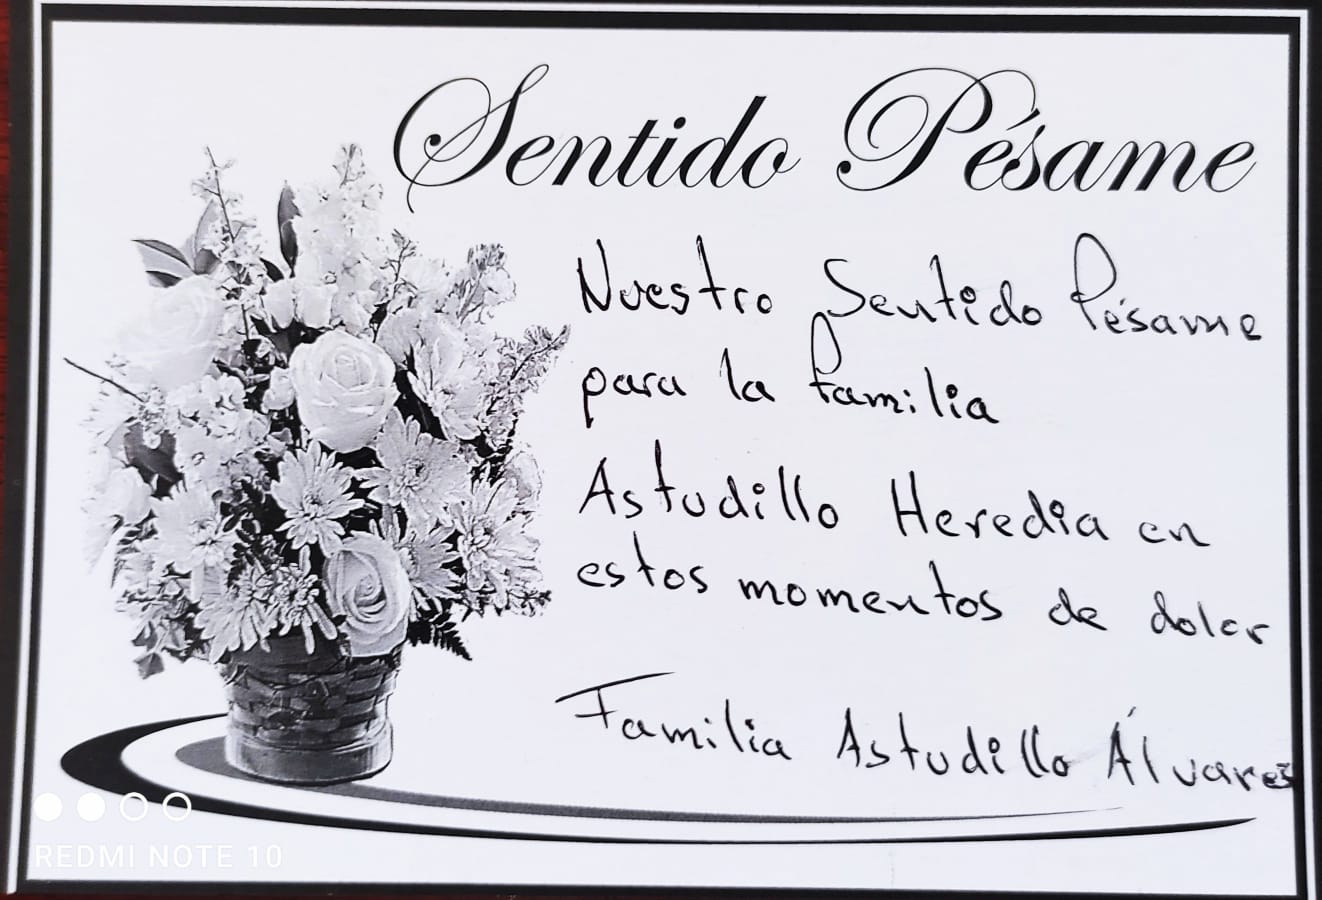 Sentido Pésame
Nuestro Sentido Pésame
para la familia
Astudillo Heredia en
estos momentos de dolor
Familia Astudillo Álvares
REDMI NOTE 10